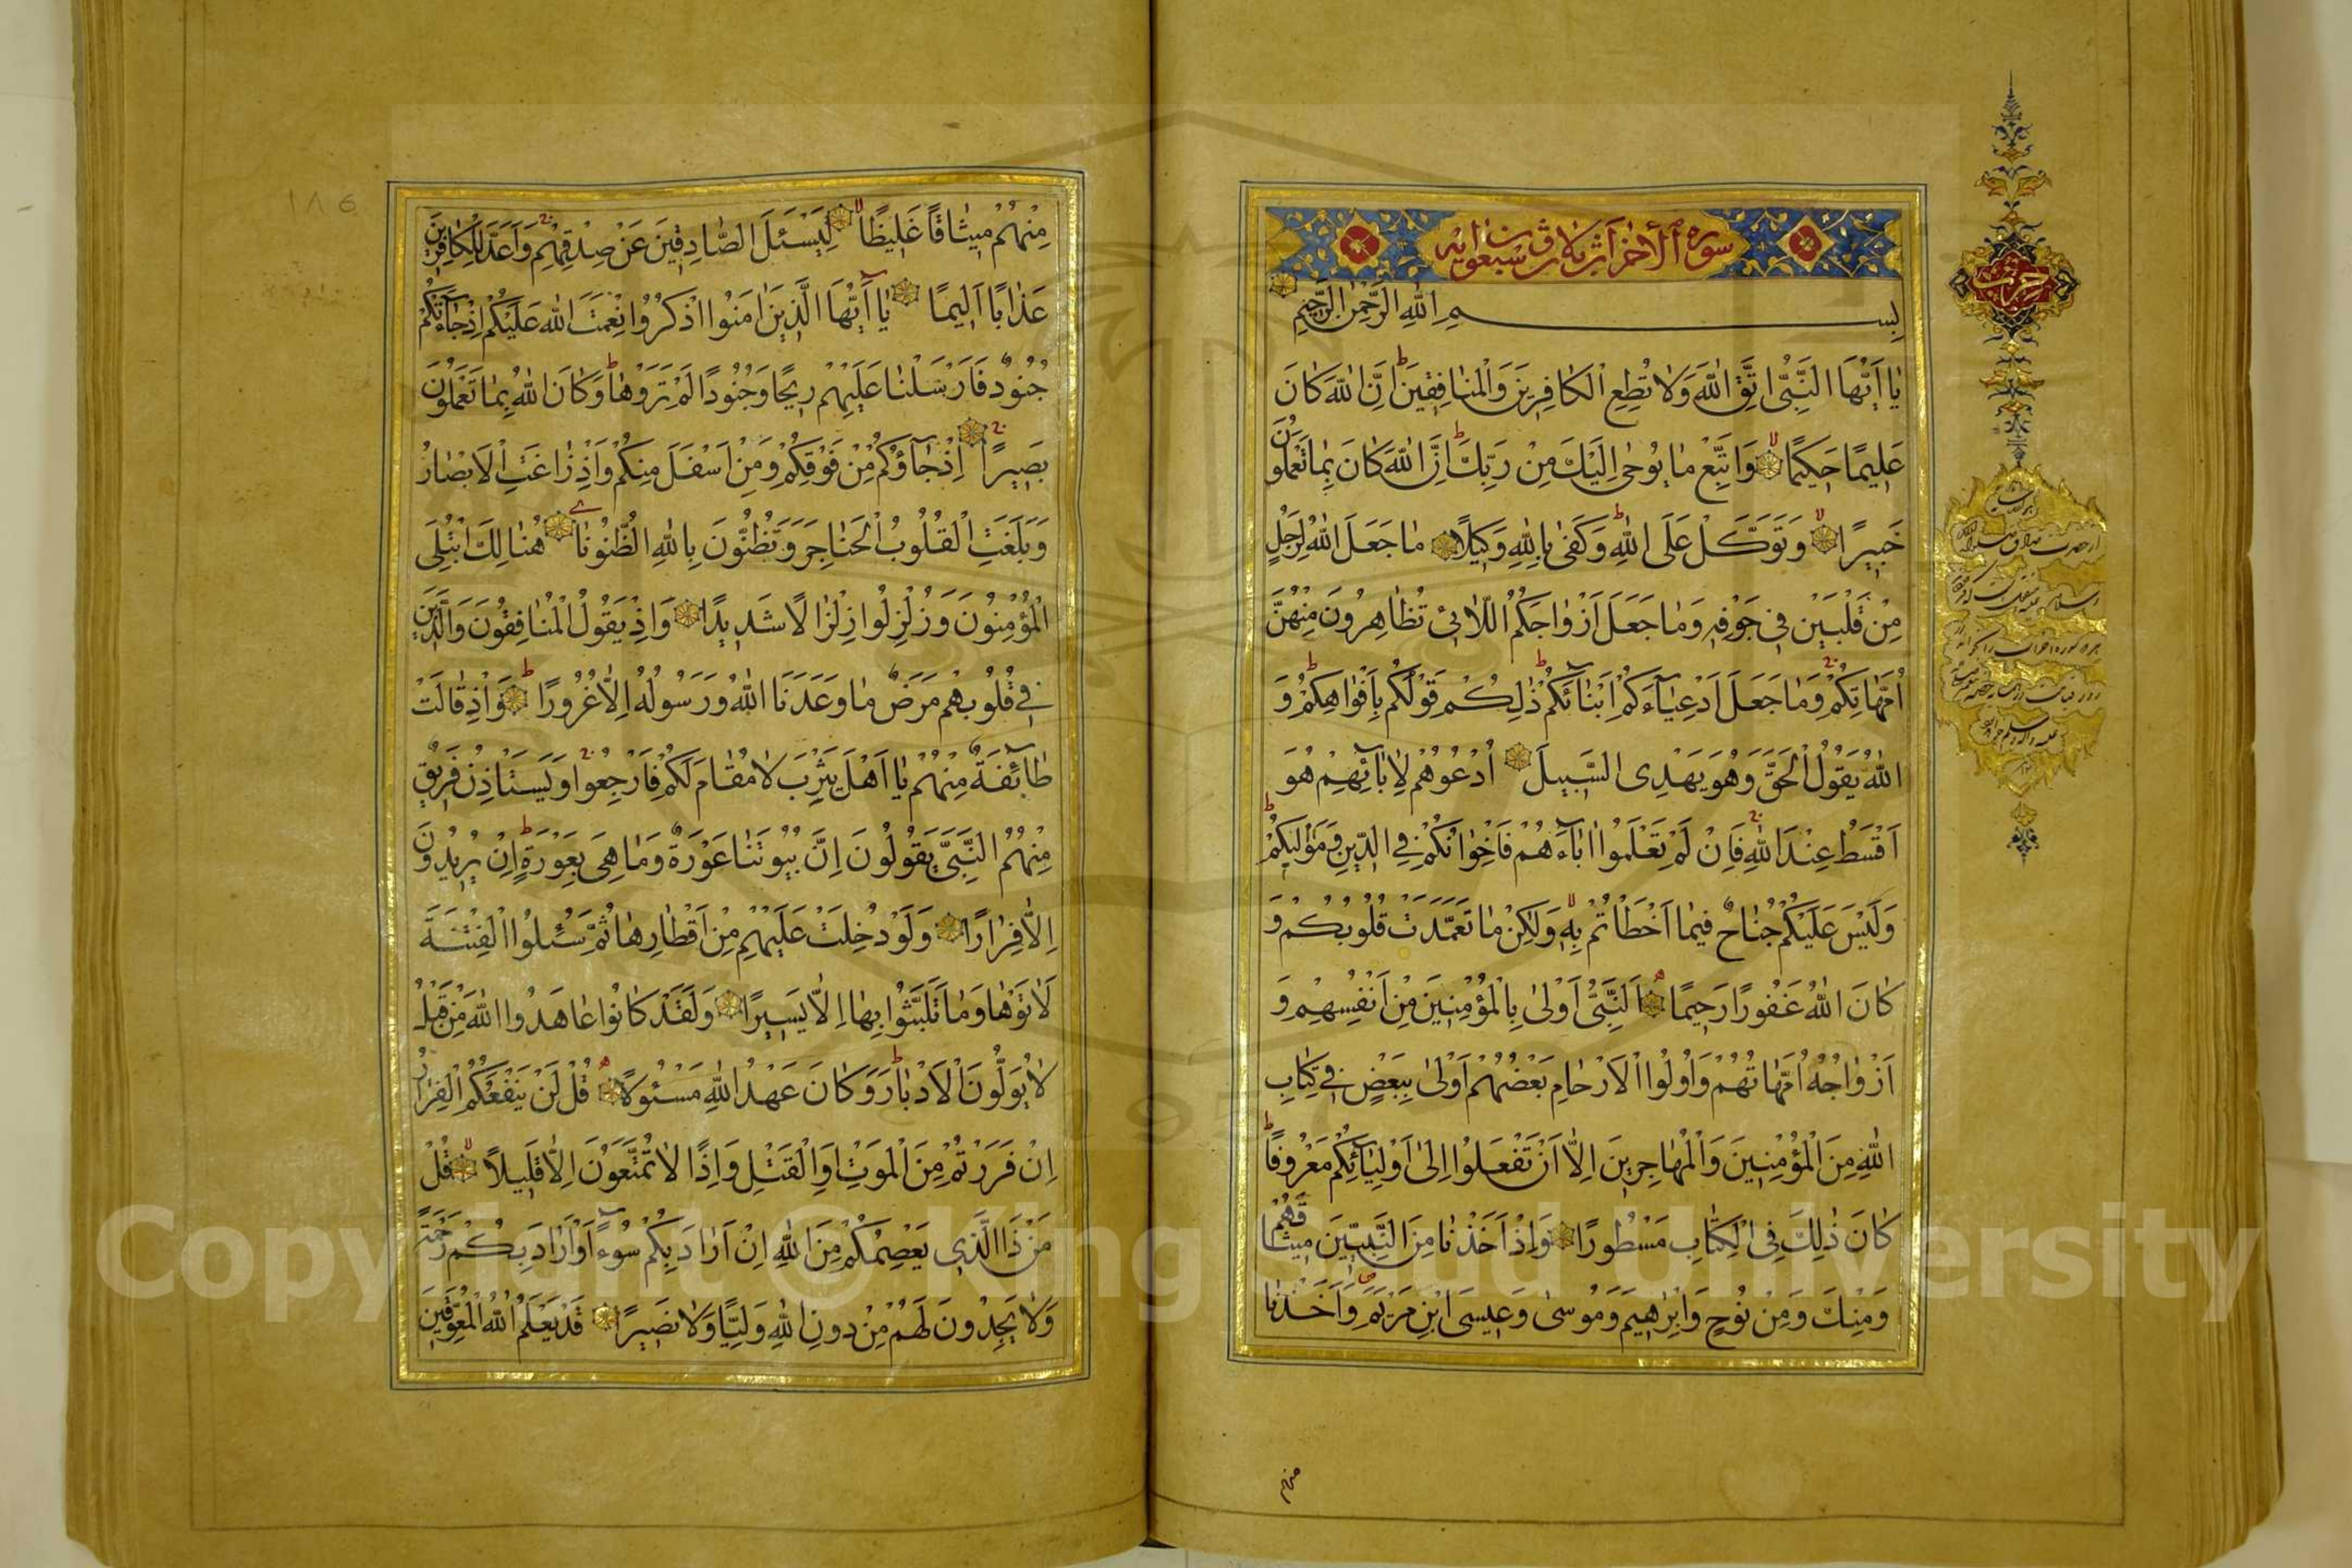 سورة الاحزاب ثلاث و سبعون آیه
حزب
بِسْمِ اللّٰهِ الرَّحْمٰنِ الرَّحِيمِ
يٰا اَيُّهَا النَّبِيُّ اتَّقِ اللّٰهَ وَلٰا تُطِعِ الْكٰافِرِينَ وَالْمُنٰافِقِينَ اِنَّ اللّٰهَ كٰانَ
عَلِيمًا حَكِيمًا وَاتَّبِعْ مٰا يُوحىٰ اِلَيْكَ مِنْ رَبِّكَ اِنَّ اللّٰهَ كٰانَ بِمٰا تَعْمَلُونَ
خَبِيرًا وَتَوَكَّلْ عَلَى اللّٰهِ وَكَفىٰ بِاللّٰهِ وَكِيلًا مٰا جَعَلَ اللّٰهُ لِرَجُلٍ
مِنْ قَلْبَيْنِ فِي جَوْفِهِ وَمٰا جَعَلَ اَزْوٰاجَكُمُ اللّٰائِي تُظٰاهِرُونَ مِنْهُنَّ
اُمَّهٰاتِكُمْ وَمٰا جَعَلَ اَدْعِيٰآءَكُمْ اَبْنٰآئَكُمْ ذٰلِكُمْ قَوْلُكُمْ بِاَفْوٰاهِكُمْ وَ
اللّٰهُ يَقُولُ الْحَقَّ وَهُوَ يَهْدِي السَّبِيلَ اُدْعُوهُمْ لِاٰبٰآئِهِمْ هُوَ
اَقْسَطُ عِنْدَ اللّٰهِ فَاِنْ لَمْ تَعْلَمُوا اٰبٰآءَهُمْ فَاِخْوٰانُكُمْ فِي الدِّينِ وَمَوٰالِيكُمْ
وَلَيْسَ عَلَيْكُمْ جُنٰاحٌ فِيمٰا اَخْطَاْتُمْ بِهِ وَلٰكِنْ مٰا تَعَمَّدَتْ قُلُوبُكُمْ وَ
كٰانَ اللّٰهُ غَفُورًا رَحِيمًا اَلنَّبِيُّ اَوْلىٰ بِالْمُؤْمِنِينَ مِنْ اَنْفُسِهِمْ وَ
اَزْوٰاجُهُ اُمَّهٰاتُهُمْ وَاُولُوا الْاَرْحٰامِ بَعْضُهُمْ اَوْلىٰ بِبَعْضٍ فِي كِتٰابِ
اللّٰهِ مِنَ الْمُؤْمِنِينَ وَالْمُهٰاجِرِينَ اِلّٰا اَنْ تَفْعَلُوا اِلىٰ اَوْلِيٰآئِكُمْ مَعْرُوفًا
كٰانَ ذٰلِكَ فِي الْكِتٰابِ مَسْطُورًا وَاِذْ اَخَذْنٰا مِنَ النَّبِيِّينَ مِيثٰاقَهُمْ
وَمِنْكَ وَمِنْ نُوحٍ وَاِبْرٰهِيمَ وَمُوسىٰ وَعِيسَى ابْنِ مَرْيَمَ وَاَخَذْنٰا
منهم
١٨٥
مِنْهُمْ مِيثٰاقًا غَلِيظًا لِيَسْئَلَ الصّٰادِقِينَ عَنْ صِدْقِهِمْ وَاَعَدَّ لِلْكٰافِرِينَ
عَذٰابًا اَلِيمًا يٰآ اَيُّهَا الَّذِينَ اٰمَنُوا اذْكُرُوا نِعْمَتَ اللّٰهِ عَلَيْكُمْ اِذْ جٰآءَتْكُمْ
جُنُودٌ فَاَرْسَلْنٰا عَلَيْهِمْ رِيحًا وَجُنُودًا لَمْ تَرَوْهٰا وَكٰانَ اللّٰهُ بِمٰا تَعْمَلُونَ
بَصِيرًا اِذْ جٰآؤُكُمْ مِنْ فَوْقِكُمْ وَمِنْ اَسْفَلَ مِنْكُمْ وَاِذْ زٰاغَتِ الْاَبْصٰارُ
وَبَلَغَتِ الْقُلُوبُ الْحَنٰاجِرَ وَتَظُنُّونَ بِاللّٰهِ الظُّنُونٰا هُنٰالِكَ ابْتُلِيَ
الْمُؤْمِنُونَ وَزُلْزِلُوا زِلْزٰالًا شَدِيدًا وَاِذْ يَقُولُ الْمُنٰافِقُونَ وَالَّذِينَ
فِي قُلُوبِهِمْ مَرَضٌ مٰا وَعَدَنَا اللّٰهُ وَرَسُولُهُ اِلّٰا غُرُورًا وَاِذْ قٰالَتْ
طٰآئِفَةٌ مِنْهُمْ يٰا اَهْلَ يَثْرِبَ لٰا مُقٰامَ لَكُمْ فَارْجِعُوا وَيَسْتَاْذِنُ فَرِيقٌ
مِنْهُمُ النَّبِيَّ يَقُولُونَ اِنَّ بُيُوتَنٰا عَوْرَةٌ وَمٰا هِيَ بِعَوْرَةٍ اِنْ يُرِيدُونَ
اِلّٰا فِرٰارًا وَلَوْ دُخِلَتْ عَلَيْهِمْ مِنْ اَقْطٰارِهٰا ثُمَّ سُئِلُوا الْفِتْنَةَ
لَاٰتَوْهٰا وَمٰا تَلَبَّثُوا بِهٰا اِلّٰا يَسِيرًا وَلَقَدْ كٰانُوا عٰاهَدُوا اللّٰهَ مِنْ قَبْلُ
لٰا يُوَلُّونَ الْاَدْبٰارَ وَكٰانَ عَهْدُ اللّٰهِ مَسْئُولًا قُلْ لَنْ يَنْفَعَكُمُ الْفِرٰارُ
اِنْ فَرَرْتُمْ مِنَ الْمَوْتِ اَوِ الْقَتْلِ وَاِذًا لٰا تُمَتَّعُونَ اِلّٰا قَلِيلًا قُلْ
مَنْ ذَا الَّذِي يَعْصِمُكُمْ مِنَ اللّٰهِ اِنْ اَرٰادَ بِكُمْ سُوٓءًا اَوْ اَرٰادَ بِكُمْ رَحْمَةً
وَلٰا يَجِدُونَ لَهُمْ مِنْ دُونِ اللّٰهِ وَلِيًّا وَلٰا نَصِيرًا قَدْ يَعْلَمُ اللّٰهُ الْمُعَوِّقِينَ
Copyright © King Saud University